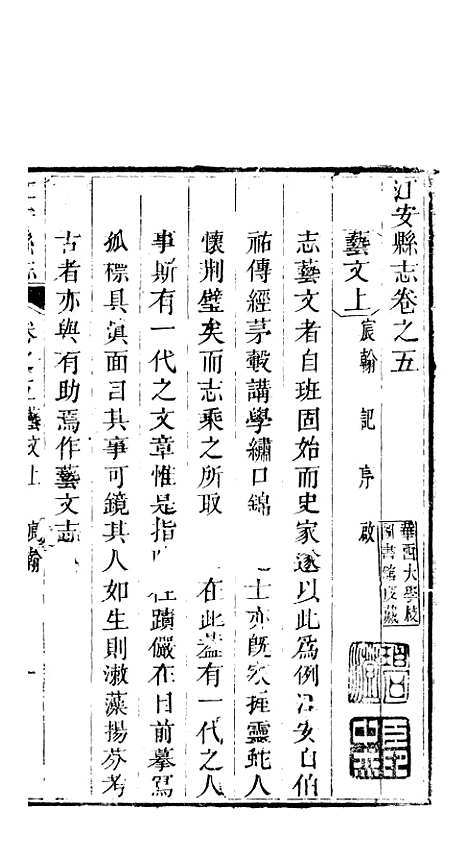 江安縣志卷之五
藝文上 宸翰 記 序 啟
志藝文者自班固始而史家遂以此爲例江安自伯
祐傳經茅轂講學繡口錦 士亦旣家握靈蛇人
懷荆璧矣而志乘之所取 在此蓋有一代之人
事斯有一代之文章惟是指 往蹟儼在目前摹寫
孤標具眞面目其事可鏡其人如生則漱藻揚芬考
古者亦與有助焉作藝文志
江安縣志 卷之五藝文上 宸翰 一
華西大學校
圖書館庋藏